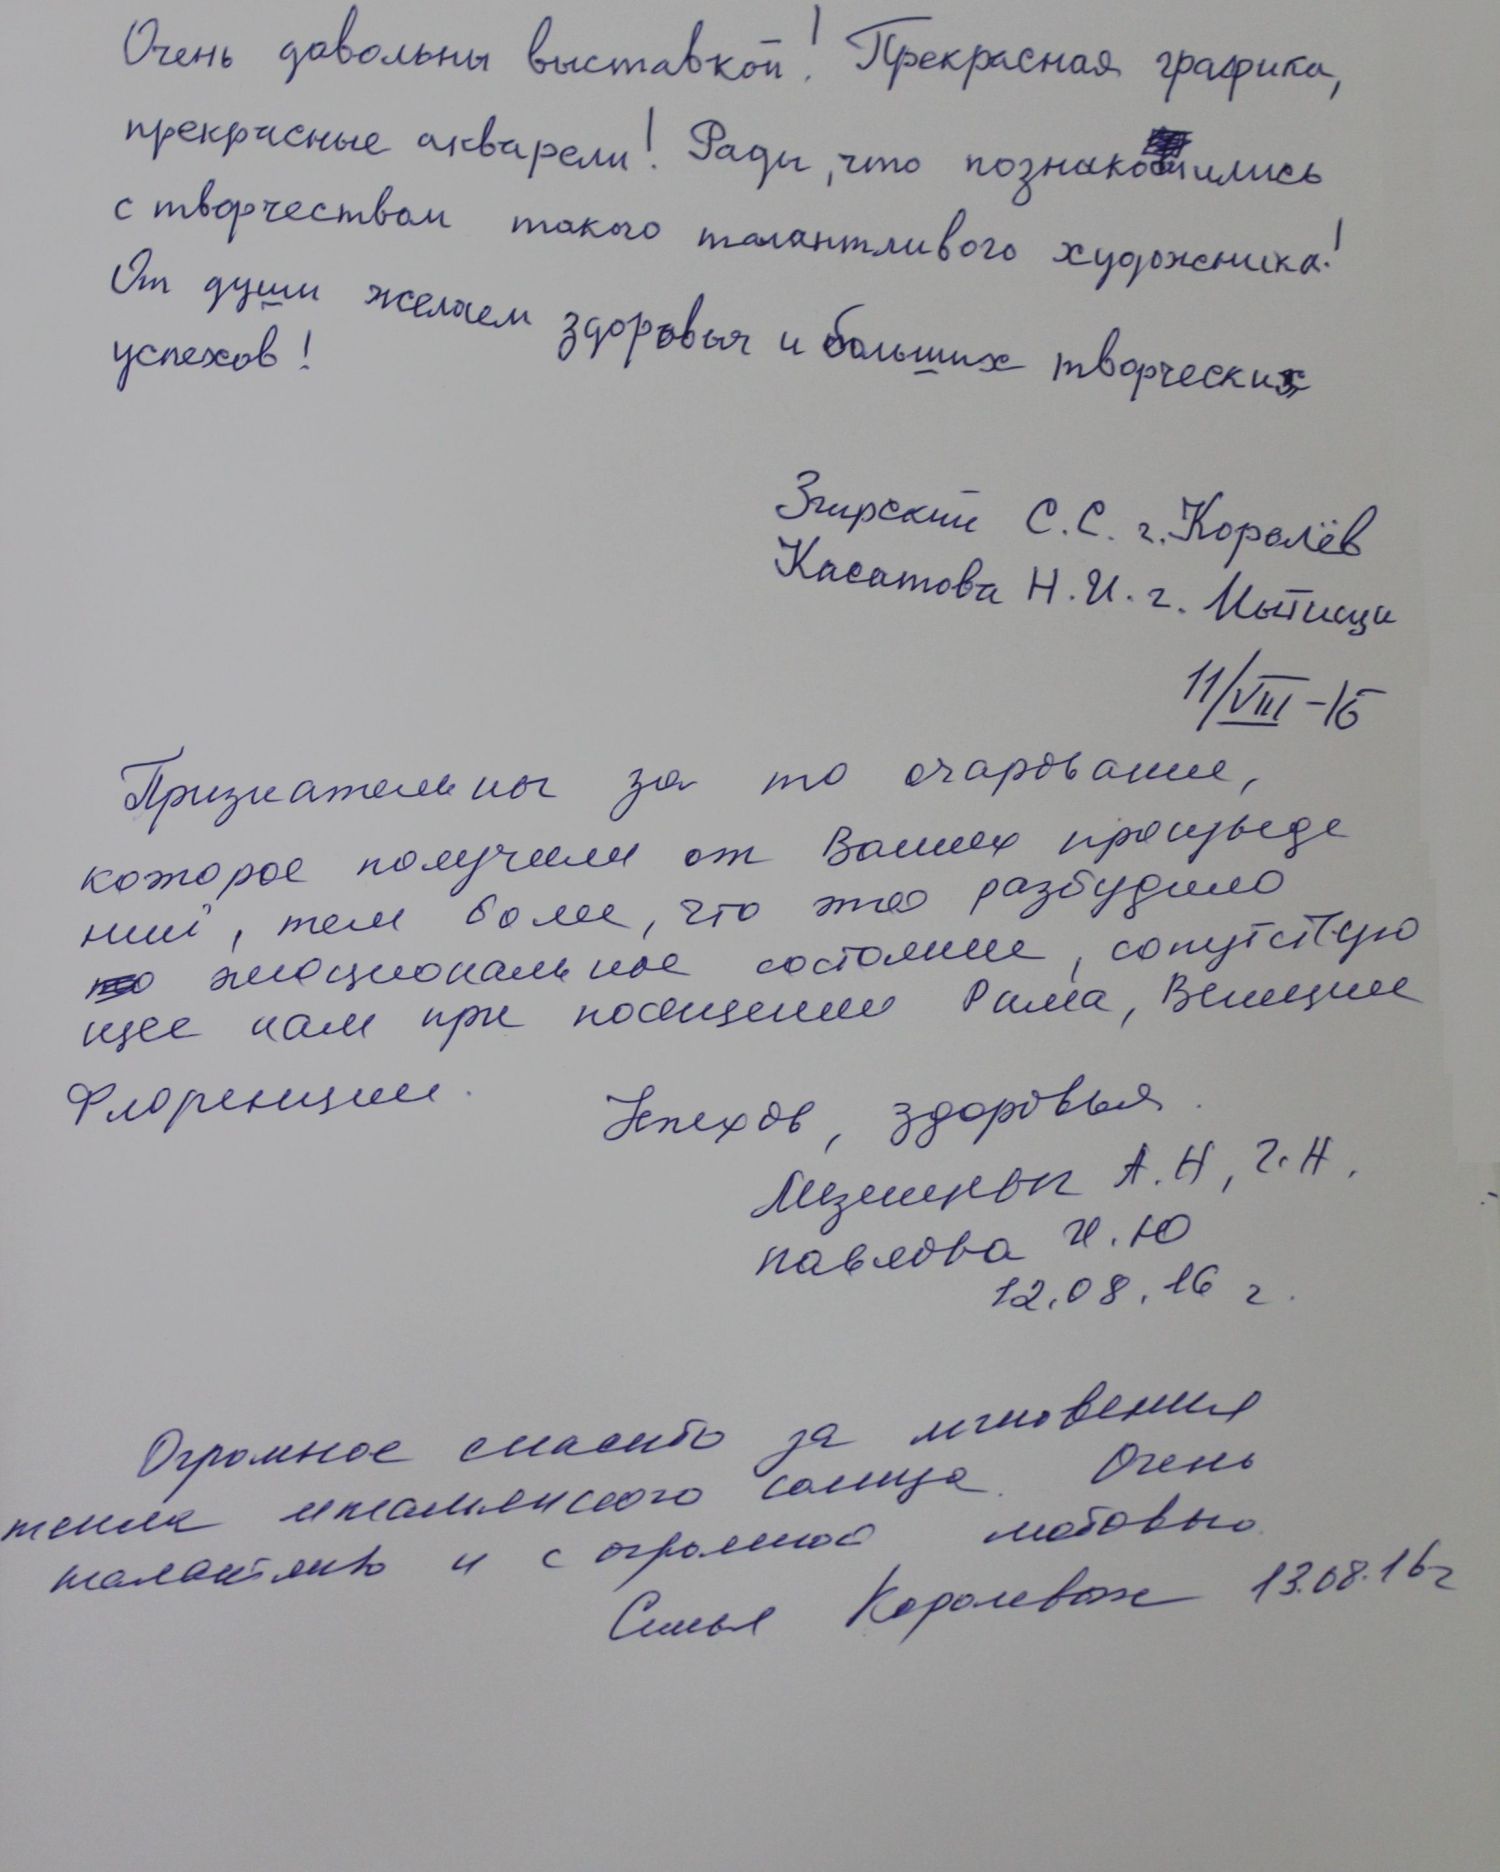 Очень довольны выставкой! Прекрасная графика,
прекрасные акварели! Рады, что познакомились
с творчеством такого талантливого художника!
От души желаем здоровья и больших творческих
успехов!
С.С. г. Королёв
Касатова Н.И. г. Мытищи
11/VIII-16
Признательны за то очарование,
которое получили от Ваших произведе
ний, тем более, что это разбудило
эмоциональное состояние, сопутствую
щее нам при посещении Рима, Венеции
Флоренции.
Успехов, здоровья.
А.Н, Г.Н.
Павлова И.Ю
12.08.16 г.
Огромное спасибо за мгновения
тепла итальянского солнца. Очень
талантливо и с огромной любовью.
Семья Королевых 13.08.16г